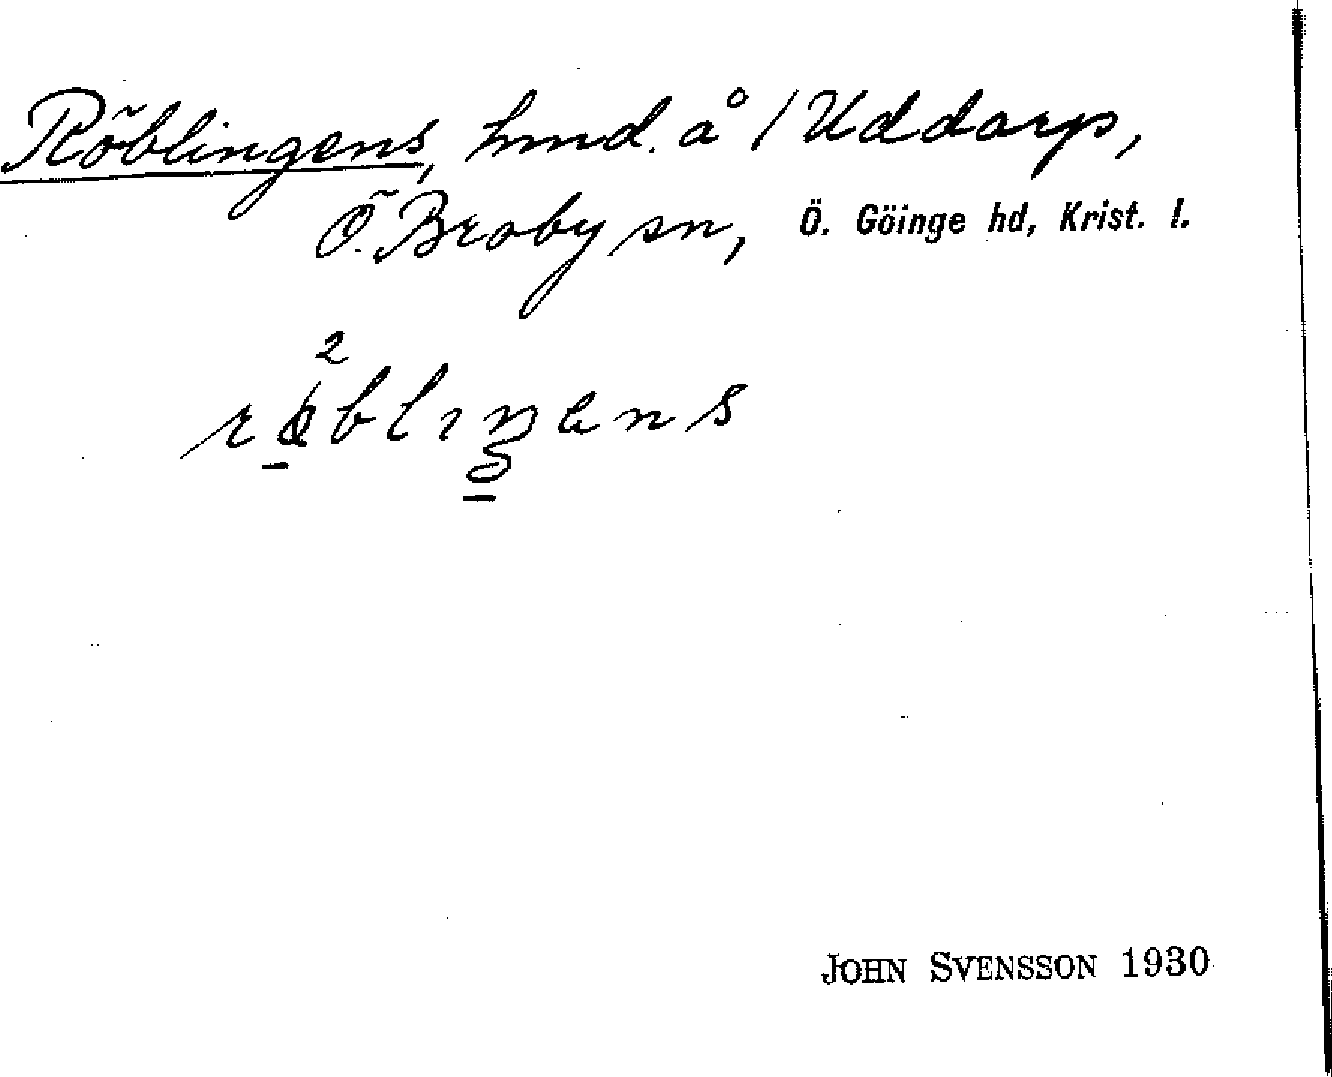 Röblingens, hmd. å 1 Uddarp,
Ö. Broby sn, Ö. Göinge hd, Krist. l.
JOHN SVENSSON 1930